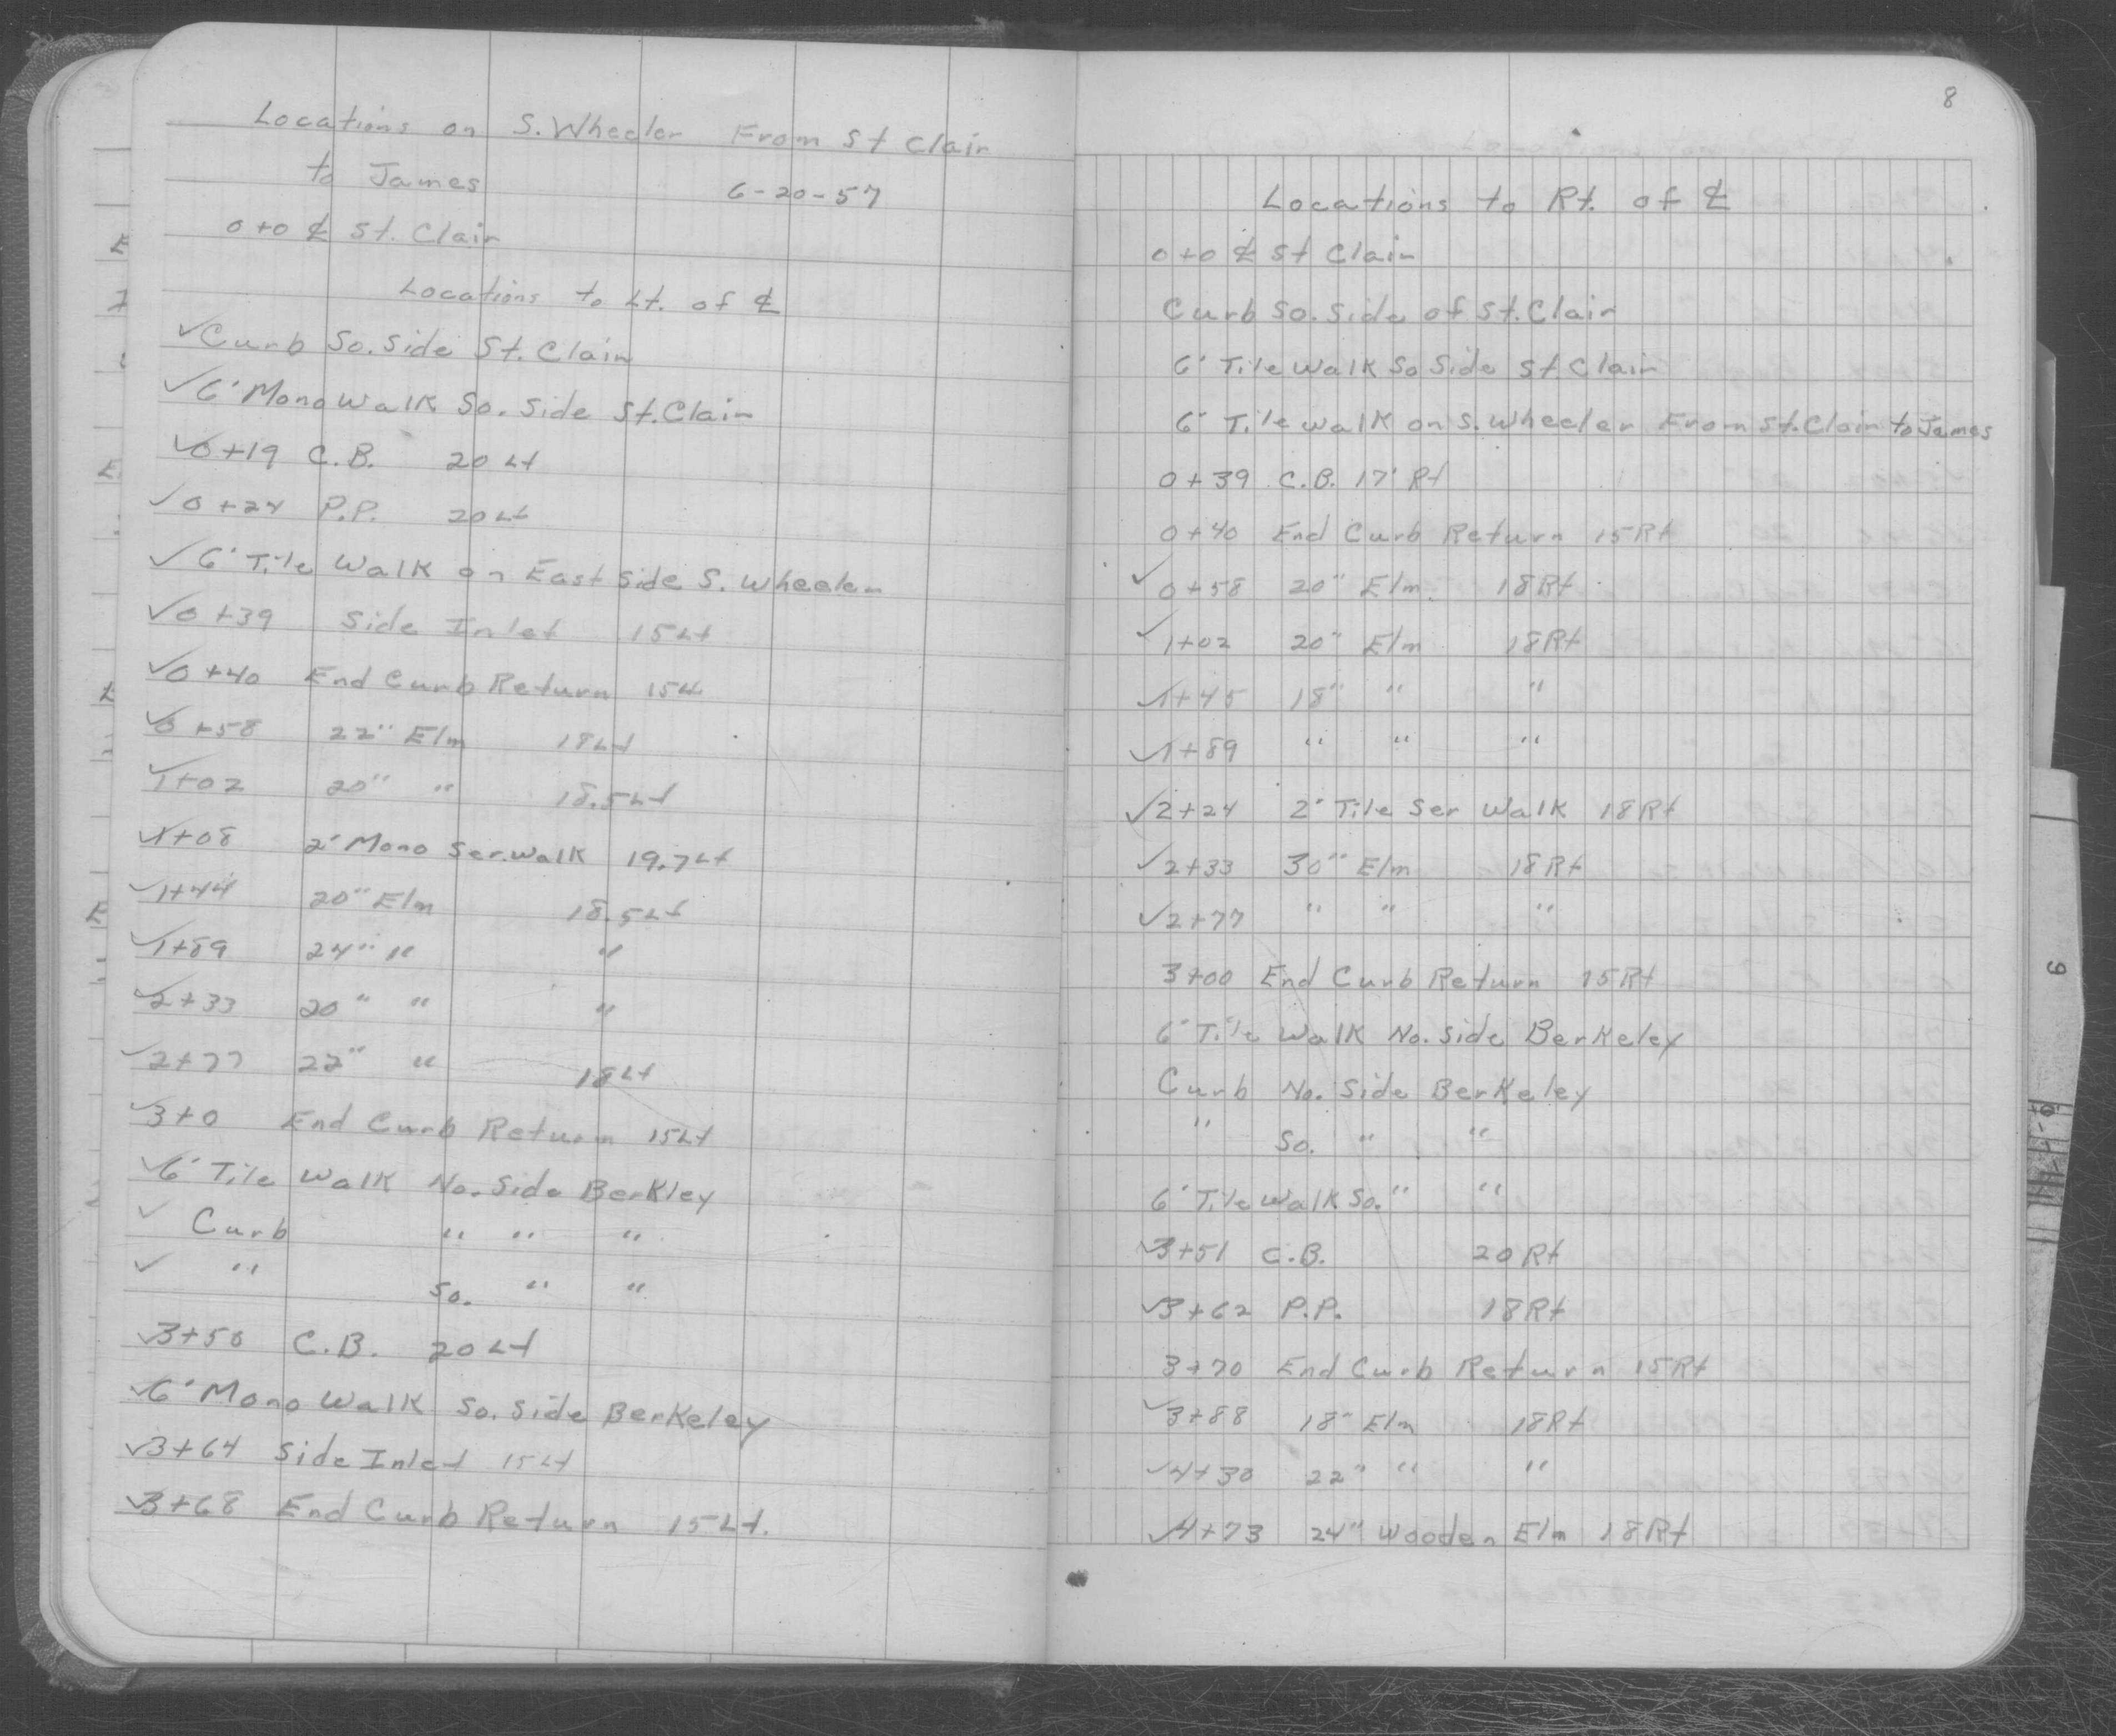 Locations on S. Wheeler From St Clair
to James 6-20-57
0+0 ℄ St. Clair
Locations to Lt. of ℄
✓Curb So. Side St. Clair
✓6' Mono Walk So. Side St. Clair
✓0+19 C.B. 20 Lt
✓0+24 P.P. 20 Lt
✓6' Tile Walk on East Side S. Wheeler
✓0+39 Side Inlet 15 Lt
✓0+40 End Curb Return 15 Lt
✓0+58 22" Elm 18 Lt
✓1+02 20" " 18.5 Lt
✓1+08 2' Mono Ser. Walk 19.7 Lt
✓1+44 20" Elm 18.5 Lt
✓1+89 24" " "
✓2+33 20" " "
✓2+77 22" " 18 Lt
✓3+0 End Curb Return 15 Lt
✓6' Tile Walk No. Side Berkley
✓ Curb " " "
✓ " So. " "
✓3+50 C.B. 20 Lt
✓6' Mono Walk So. Side Berkeley
✓3+64 Side Inlet 15 Lt
✓3+68 End Curb Return 15 Lt.
8
Locations to Rt. of ℄
0+0 ℄ St Clair
Curb So. Side of St. Clair
6' Tile Walk So Side St. Clair
6' Tile Walk on S. Wheeler From St. Clair to James
0+39 C.B. 17' Rt
0+40 End Curb Return 15 Rt
✓0+58 20" Elm 18 Rt
✓1+02 20" Elm 18 Rt
✓1+45 18" " "
✓1+89 " " "
✓2+24 2' Tile Ser Walk 18 Rt
✓2+33 30" Elm 18 Rt
✓2+77 " " "
3+00 End Curb Return 15 Rt
6' Tile Walk No. Side Berkeley
Curb No. Side Berkeley
" So. " "
6' Tile Walk So. " "
✓3+51 C.B. 20 Rt
✓3+62 P.P. 18 Rt
3+70 End Curb Return 15 Rt
✓3+88 18" Elm 18 Rt
✓4+30 22" " "
✓4+73 24" Wooden Elm 18 Rt